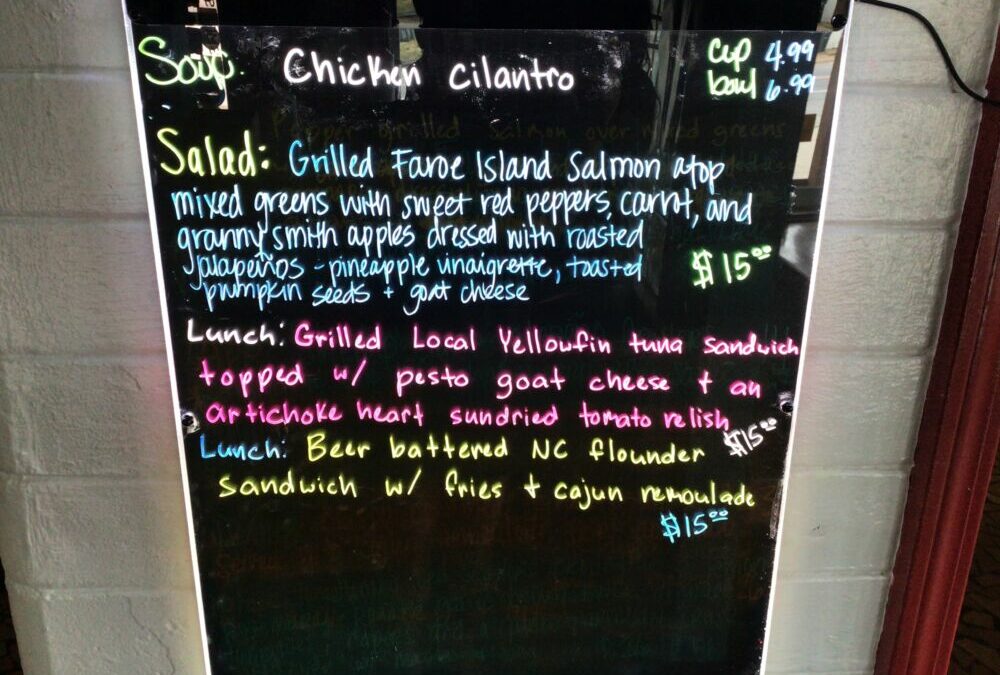 Soup: Chicken cilantro cup 4.99
bowl 6.99
Pepper grilled Salmon over mixed greens
Salad: Grilled Faroe Island Salmon atop
mixed greens with sweet red peppers, carrot, and
granny smith apples dressed with roasted
jalapeños - pineapple vinaigrette, toasted $15.00
pumpkin seeds + goat cheese
Lunch: Grilled Local Yellowfin tuna sandwich
topped w/ pesto goat cheese + an
artichoke heart sundried tomato relish $15.00
Lunch: Beer battered NC flounder
sandwich w/ fries + cajun remoulade
$15.00